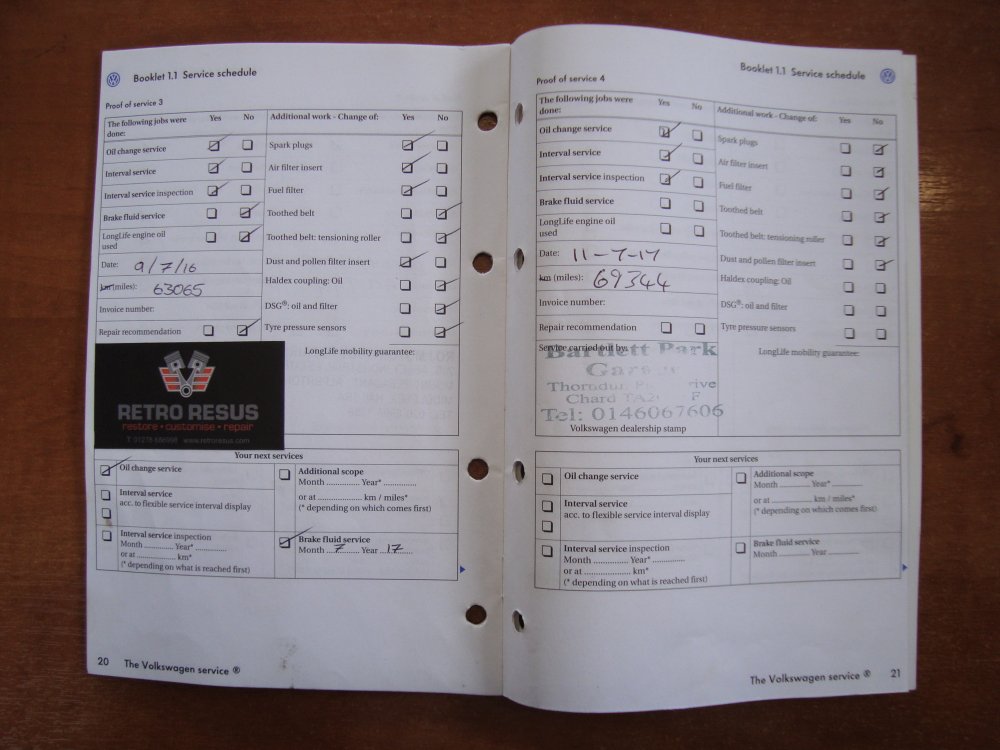 Booklet 1.1 Service schedule
Proof of service 3
The following jobs were done: Yes No Additional work - Change of: Yes No
Oil change service
Interval service
Interval service inspection
Brake fluid service
LongLife engine oil
used
Date: 9/7/16
km (miles): 63065
Invoice number:
Repair recommendation
Spark plugs
Air filter insert
Fuel filter
Toothed belt
Toothed belt: tensioning roller
Dust and pollen filter insert
Haldex coupling: Oil
DSG®: oil and filter
Tyre pressure sensors
LongLife mobility guarantee:
RETRO RESUS
restore • customise • repair
T: 01278 686998 www.retroresus.com
Your next services
Oil change service
Interval service
acc. to flexible service interval display
Interval service inspection
Month ............ Year* ............
or at ............ km*
(* depending on what is reached first)
Additional scope
Month ............ Year* ............
or at ............ km / miles*
(* depending on which comes first)
Brake fluid service
Month ...7... Year ...17...
20 The Volkswagen service ®
Booklet 1.1 Service schedule
Proof of service 4
The following jobs were done: Yes No Additional work - Change of: Yes No
Oil change service
Interval service
Interval service inspection
Brake fluid service
LongLife engine oil
used
Date: 11-7-17
km (miles): 69344
Invoice number:
Repair recommendation
Spark plugs
Air filter insert
Fuel filter
Toothed belt
Toothed belt: tensioning roller
Dust and pollen filter insert
Haldex coupling: Oil
DSG®: oil and filter
Tyre pressure sensors
Service carried out by:
Bartlett Park
Chard
Tel: 01460 67606
Volkswagen dealership stamp
LongLife mobility guarantee:
Your next services
Oil change service
Interval service
acc. to flexible service interval display
Interval service inspection
Month ............ Year* ............
or at ............ km*
(* depending on what is reached first)
Additional scope
Month ............ Year* ............
or at ............ km / miles*
(* depending on which comes first)
Brake fluid service
Month ............ Year ............
The Volkswagen service ® 21